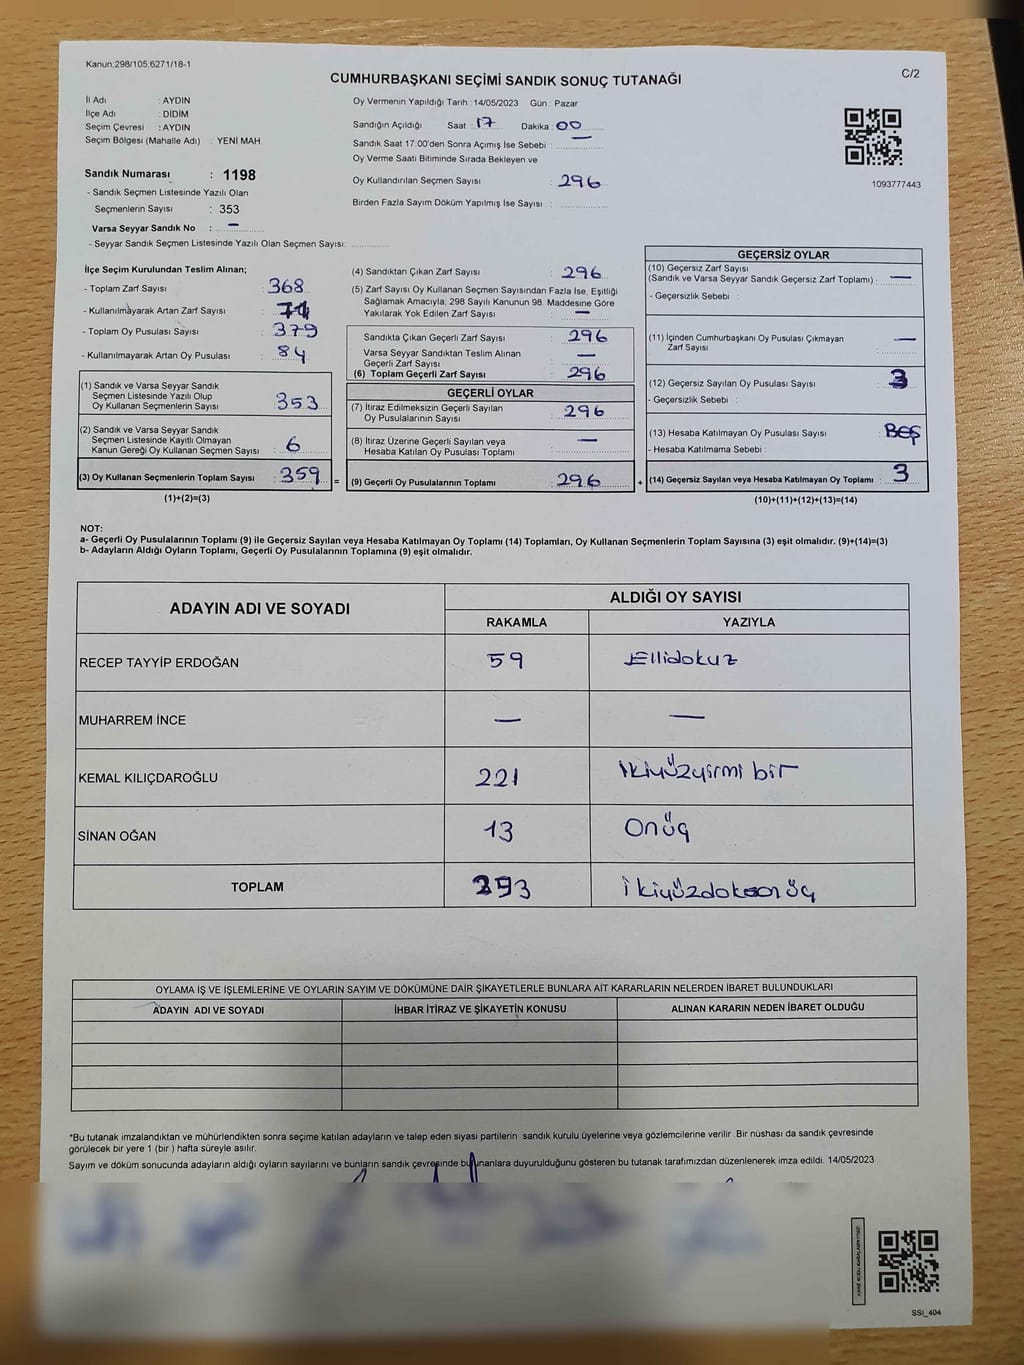 Kanun;298/105,6271/18-1
C/2
CUMHURBAŞKANI SEÇİMİ SANDIK SONUÇ TUTANAĞI
İl Adı : AYDIN
İlçe Adı : DİDİM
Seçim Çevresi : AYDIN
Seçim Bölgesi (Mahalle Adı) : YENİ MAH
Sandık Numarası : 1198
- Sandık Seçmen Listesinde Yazılı Olan
Seçmenlerin Sayısı : 353
Varsa Seyyar Sandık No : —
- Seyyar Sandık Seçmen Listesinde Yazılı Olan Seçmen Sayısı:
Oy Vermenin Yapıldığı Tarih : 14/05/2023 Gün : Pazar
Sandığın Açıldığı Saat : 17 Dakika : 00
Sandık Saat 17:00'den Sonra Açımış İse Sebebi : —
Oy Verme Saati Bitiminde Sırada Bekleyen ve
Oy Kullandırılan Seçmen Sayısı : 296
Birden Fazla Sayım Döküm Yapılmış İse Sayısı :
1093777443
İlçe Seçim Kurulundan Teslim Alınan;
- Toplam Zarf Sayısı : 368
- Kullanılmayarak Artan Zarf Sayısı :
- Toplam Oy Pusulası Sayısı : 379
- Kullanılmayarak Artan Oy Pusulası : 84
(1) Sandık ve Varsa Seyyar Sandık
Seçmen Listesinde Yazılı Olup
Oy Kullanan Seçmenlerin Sayısı : 353
(2) Sandık ve Varsa Seyyar Sandık
Seçmen Listesinde Kayıtlı Olmayan
Kanun Gereği Oy Kullanan Seçmen Sayısı : 6
(3) Oy Kullanan Seçmenlerin Toplam Sayısı : 359
(1)+(2)=(3)
=
(4) Sandıktan Çıkan Zarf Sayısı : 296
(5) Zarf Sayısı Oy Kullanan Seçmen Sayısından Fazla İse, Eşitliği
Sağlamak Amacıyla; 298 Sayılı Kanunun 98. Maddesine Göre
Yakılarak Yok Edilen Zarf Sayısı : —
Sandıkta Çıkan Geçerli Zarf Sayısı : 296
Varsa Seyyar Sandıktan Teslim Alınan
Geçerli Zarf Sayısı : —
(6) Toplam Geçerli Zarf Sayısı : 296
GEÇERLİ OYLAR
(7) İtiraz Edilmeksizin Geçerli Sayılan
Oy Pusulalarının Sayısı : 296
(8) İtiraz Üzerine Geçerli Sayılan veya
Hesaba Katılan Oy Pusulası Toplamı : —
(9) Geçerli Oy Pusulalarının Toplamı : 296
+
GEÇERSİZ OYLAR
(10) Geçersiz Zarf Sayısı
(Sandık ve Varsa Seyyar Sandık Geçersiz Zarf Toplamı) : —
- Geçersizlik Sebebi :
(11) İçinden Cumhurbaşkanı Oy Pusulası Çıkmayan
Zarf Sayısı : —
(12) Geçersiz Sayılan Oy Pusulası Sayısı : 3
- Geçersizlik Sebebi :
(13) Hesaba Katılmayan Oy Pusulası Sayısı : Beş
- Hesaba Katılmama Sebebi :
(14) Geçersiz Sayılan veya Hesaba Katılmayan Oy Toplamı : 3
(10)+(11)+(12)+(13)=(14)
NOT:
a- Geçerli Oy Pusulalarının Toplamı (9) ile Geçersiz Sayılan veya Hesaba Katılmayan Oy Toplamı (14) Toplamları, Oy Kullanan Seçmenlerin Toplam Sayısına (3) eşit olmalıdır. (9)+(14)=(3)
b- Adayların Aldığı Oyların Toplamı, Geçerli Oy Pusulalarının Toplamına (9) eşit olmalıdır.
ADAYIN ADI VE SOYADI ALDIĞI OY SAYISI
RAKAMLA YAZIYLA
RECEP TAYYİP ERDOĞAN 59 Ellidokuz
MUHARREM İNCE — —
KEMAL KILIÇDAROĞLU 221 ikiyüzyirmi bir
SİNAN OĞAN 13 Onüç
TOPLAM 293 ikiyüzdoksonüç
OYLAMA İŞ VE İŞLEMLERİNE VE OYLARIN SAYIM VE DÖKÜMÜNE DAİR ŞİKAYETLERLE BUNLARA AİT KARARLARIN NELERDEN İBARET BULUNDUKLARI
ADAYIN ADI VE SOYADI İHBAR İTİRAZ VE ŞİKAYETİN KONUSU ALINAN KARARIN NEDEN İBARET OLDUĞU
*Bu tutanak imzalandıktan ve mühürlendikten sonra seçime katılan adayların ve talep eden siyasi partilerin sandık kurulu üyelerine veya gözlemcilerine verilir .Bir nüshası da sandık çevresinde
görülecek bir yere 1 (bir ) hafta süreyle asılır.
Sayım ve döküm sonucunda adayların aldığı oyların sayılarını ve bunların sandık çevresinde bulunanlara duyurulduğunu gösteren bu tutanak tarafımızdan düzenlenerek imza edildi. 14/05/2023
KARE KODU KARALAMAYINIZ!
SSI_404